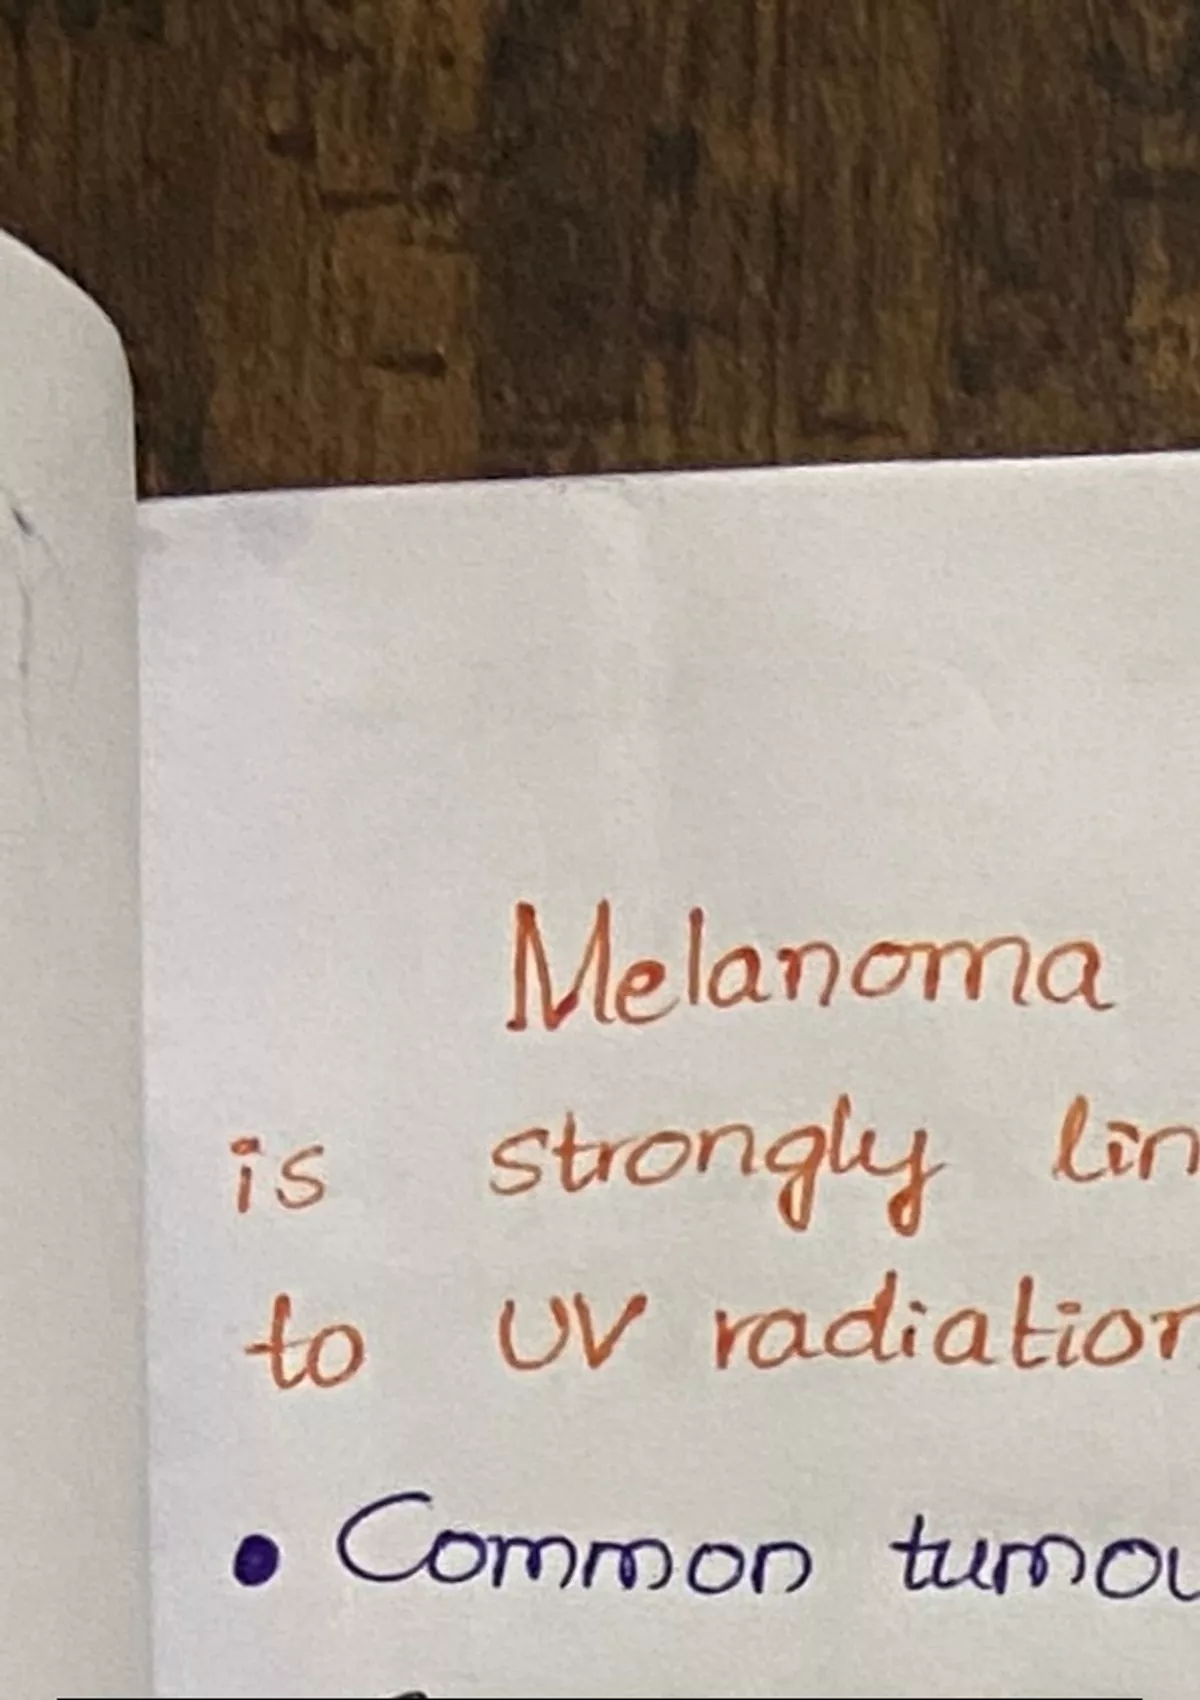 Melanoma
is strongly lin
to UV radiation
• Common tumou